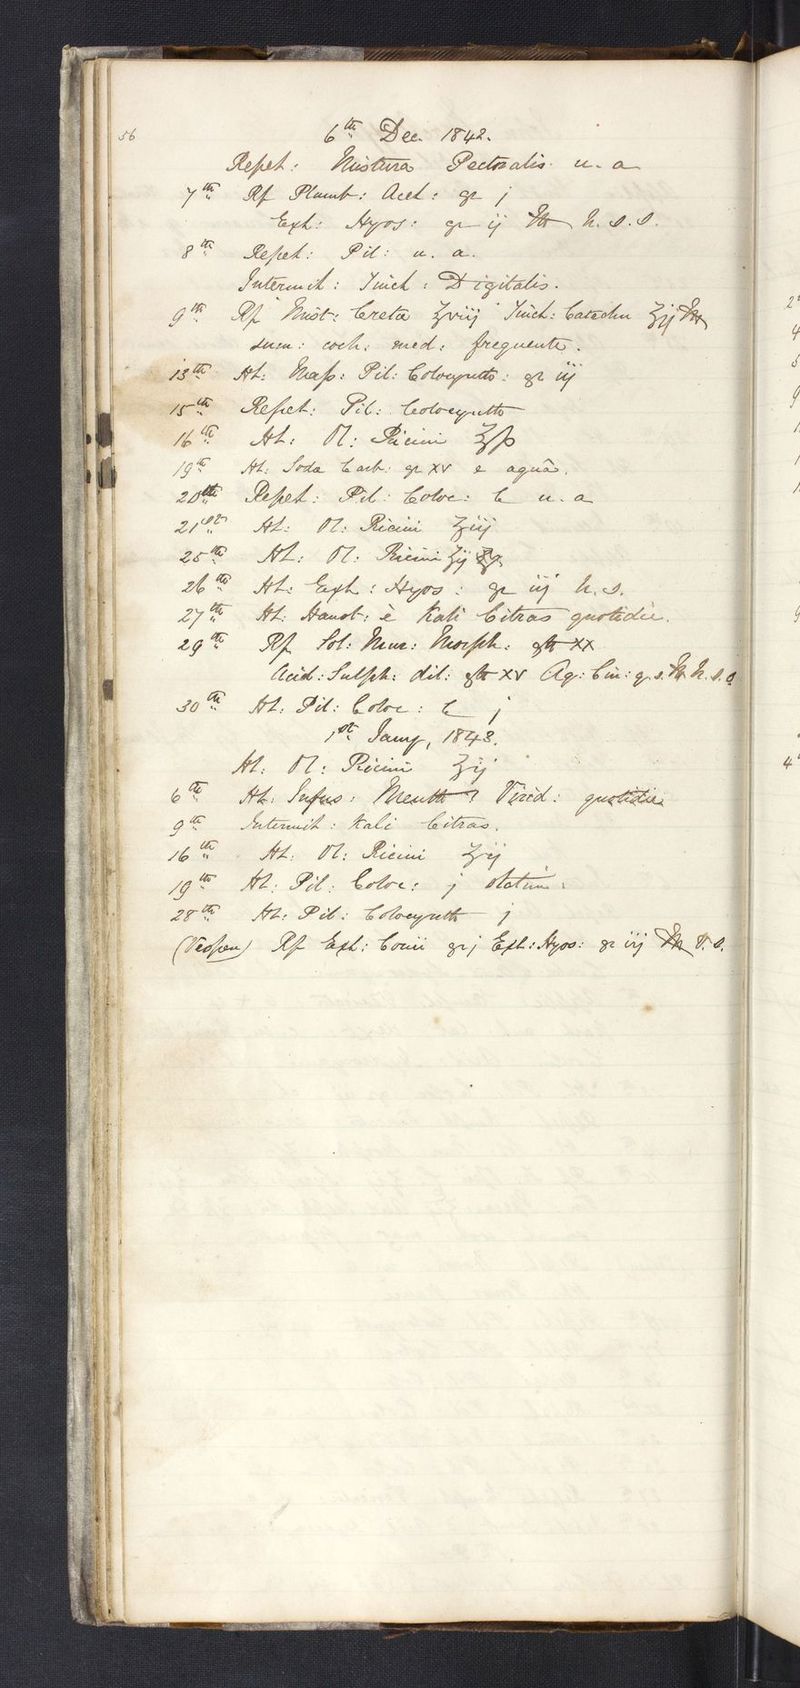 56
6th Dec. 1842.
Repet: Mistura Pectoralis u. a
7th Rx Plumb: Acet: gr j
Ext: Hyos: gr ij M h. s. s.
8th Repet: Pil: u. a.
Intermit: Tinct: Digitalis.
9th Rx Mist: Creta ℥viij Tinct: Catechu ʒij M
sum: coch: med: frequente.
13th Ht: Mass: Pil: Colocynth: gr iij
15th Repet: Pil: Colocynth
16th Ht: Ol: Ricini ℥ß
19th Ht: Soda Carb: gr xv e aquâ.
20th Repet: Pil: Coloc: C u. a
21st Ht: Ol: Ricini ʒiij
25th Ht: Ol: Ricini ʒij
26th Ht: Ext: Hyos: gr iij h. s.
27th Ht: Haust: è Kali Citras quotidie.
29th Rx Sol: Mur: Morph: gtt xx
Acid: Sulph: dil: gtt xv Aq: Cin: q. s. M h. s. s
30th Ht: Pil: Coloc: C j
1st Jany, 1843.
Ht: Ol: Ricini ʒij
6th Ht: Infus: Menth: Virid: quotidie
9th Intermit: Kali Citras.
16th Ht: Ol: Ricini ʒij
19th Ht: Pil: Coloc: j statim:
28th Ht: Pil: Colocynth j
(Vesper) Rx Ext: Conii gr j Ext: Hyos: gr iij M V. s.